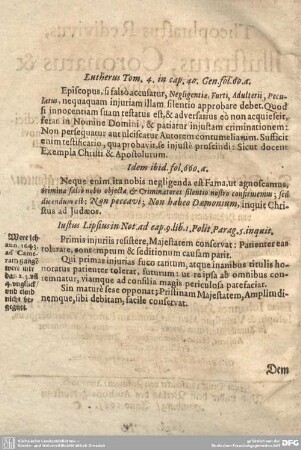 Eutherus Tom. 4. in cap. 40. Gen. fol. 60. a.
Episcopus, si falso accusatur, Negligentiæ, Furti, Adulterii, Pecu-
latus, nequaquam injuriam illam silentio approbare debet. Quod
si innocentiam suam testatus est, & adversarius eo non acquiescit,
ferat in Nomine Domini, & patiatur injustam criminationem:
Non persequatur aut plectatur Autorem contumeliarum. Sufficit
enim testificatio, qua probavit, se injuste proscindi. Sicut docent
Exempla Christi & Apostolorum.
Idem ibid. fol. 660. a.
Neque enim ita nobis negligenda est Fama, ut agnoscamus,
crimina falsò nobis objecta, & Criminatores silentio nostro confirmemus; sed
dicendum est: Non peccavi; Non habeo Dæmonium, inquit Chri-
stus ad Judæos.
Justus Lipsius in Not. ad cap. 9. lib. 1. Polit. Parag. 5. inquit.
Primis injuriis resistere, Majestatem conservat: Patienter eas
tolerare, contemptum & seditionum causam parit.
Qui primas injurias fuco tantum, atque inanibus titulis ho-
noratus patienter tolerat, futurum: ut re ipsa ab omnibus con-
temnatur, viamque ad consilia magis periculosa patefaciat.
Sin maturè sese opponat; Pristinam Majestatem, Amplitudi-
nemque, sibi debitam, facile conservat.
ann. 1643.
ad Came-
Dem